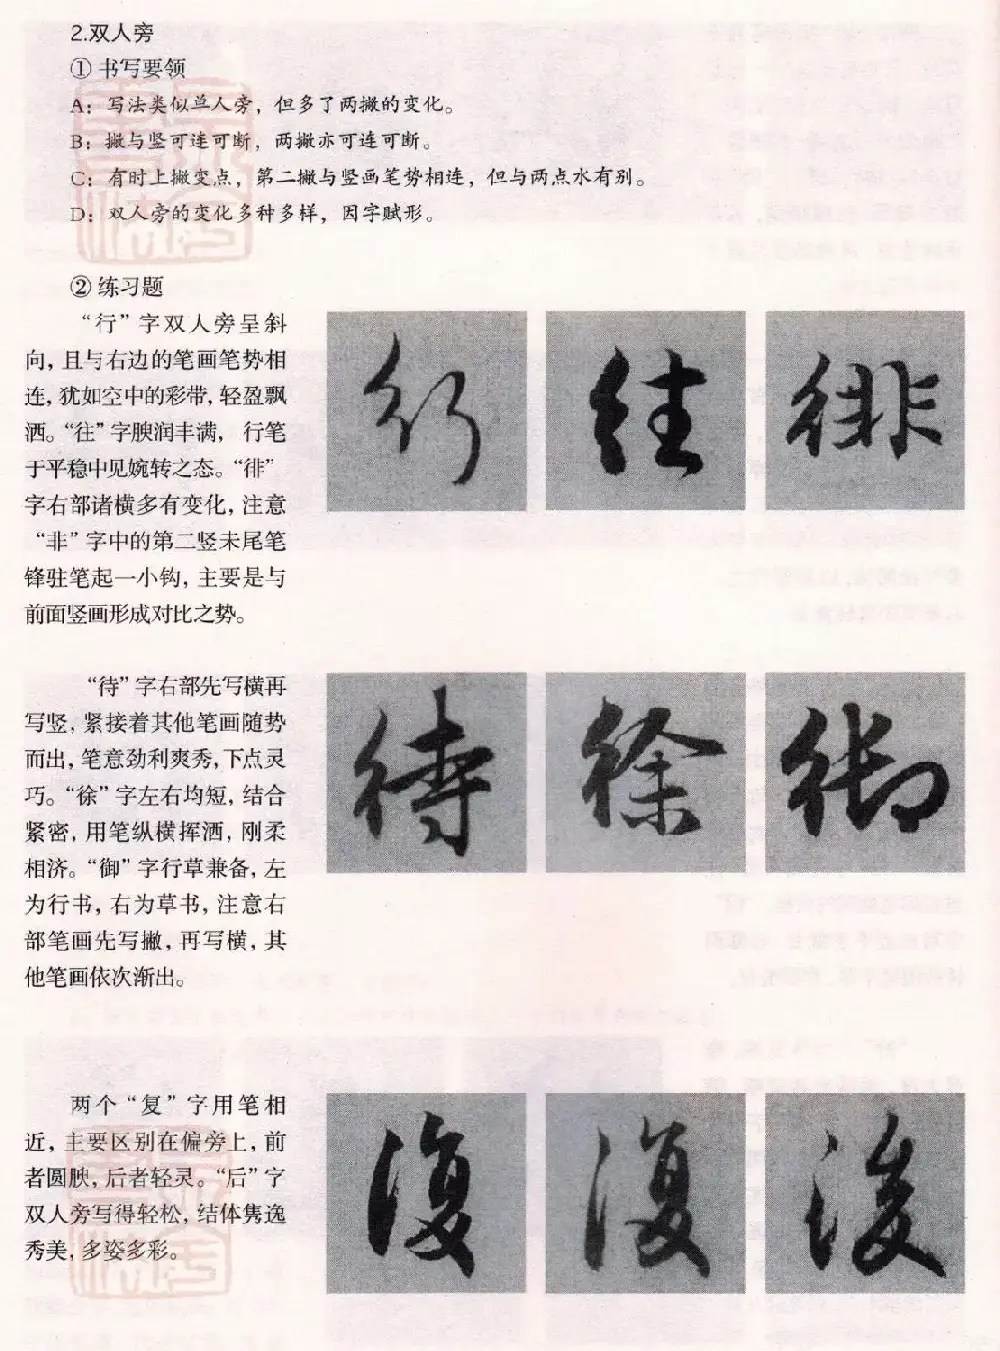 2.双人旁
① 书写要领
A：写法类似单人旁，但多了两撇的变化。
B：撇与竖可连可断，两撇亦可连可断。
C：有时上撇变点，第二撇与竖画笔势相连，但与两点水有别。
D：双人旁的变化多种多样，因字赋形。
② 练习题
“行”字双人旁呈斜
向，且与右边的笔画笔势相
连，犹如空中的彩带，轻盈飘
洒。“往”字腴润丰满，行笔
于平稳中见婉转之态。“徘”
字右部诸横多有变化，注意
“非”字中的第二竖未尾笔
锋驻笔起一小钩，主要是与
前面竖画形成对比之势。
行 往 徘
“待”字右部先写横再
写竖，紧接着其他笔画随势
而出，笔意劲利爽秀，下点灵
巧。“徐”字左右均短，结合
紧密，用笔纵横挥洒，刚柔
相济。“御”字行草兼备，左
为行书，右为草书，注意右
部笔画先写撇，再写横，其
他笔画依次渐出。
待 徐 御
两个“复”字用笔相
近，主要区别在偏旁上，前
者圆腴，后者轻灵。“后”字
双人旁写得轻松，结体隽逸
秀美，多姿多彩。
復 復 後